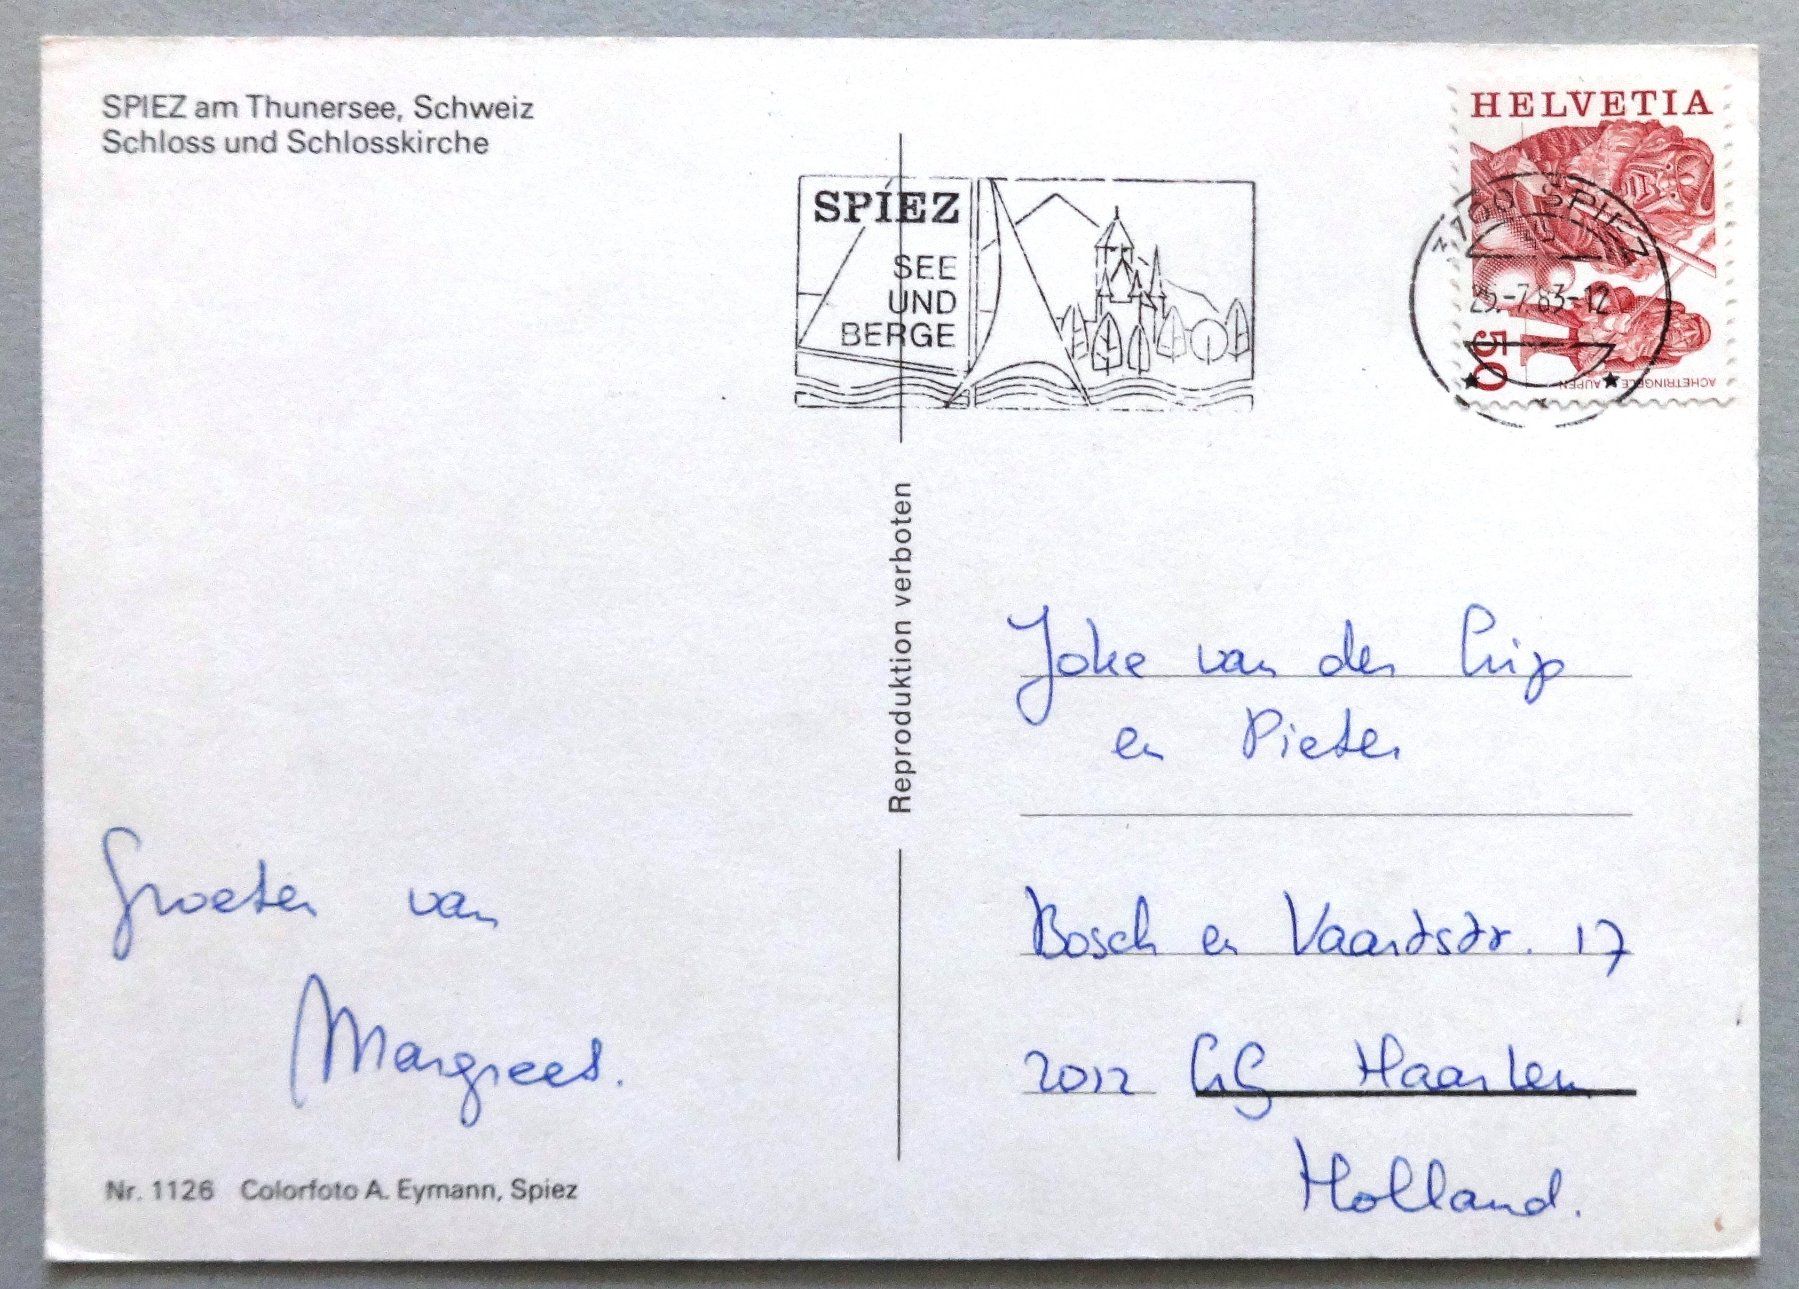 SPIEZ am Thunersee, Schweiz
Schloss und Schlosskirche
SPIEZ
SEE
UND
BERGE
HELVETIA
3700 SPIEZ
25.-7.83-12
50
ACHETRINGELE LAUPEN
Reproduktion verboten
Groeten van
Margreet.
Nr. 1126 Colorfoto A. Eymann, Spiez
Joke van der
en Pieter
Bosch en Vaartstr. 17
2012 Haarlem
Holland.